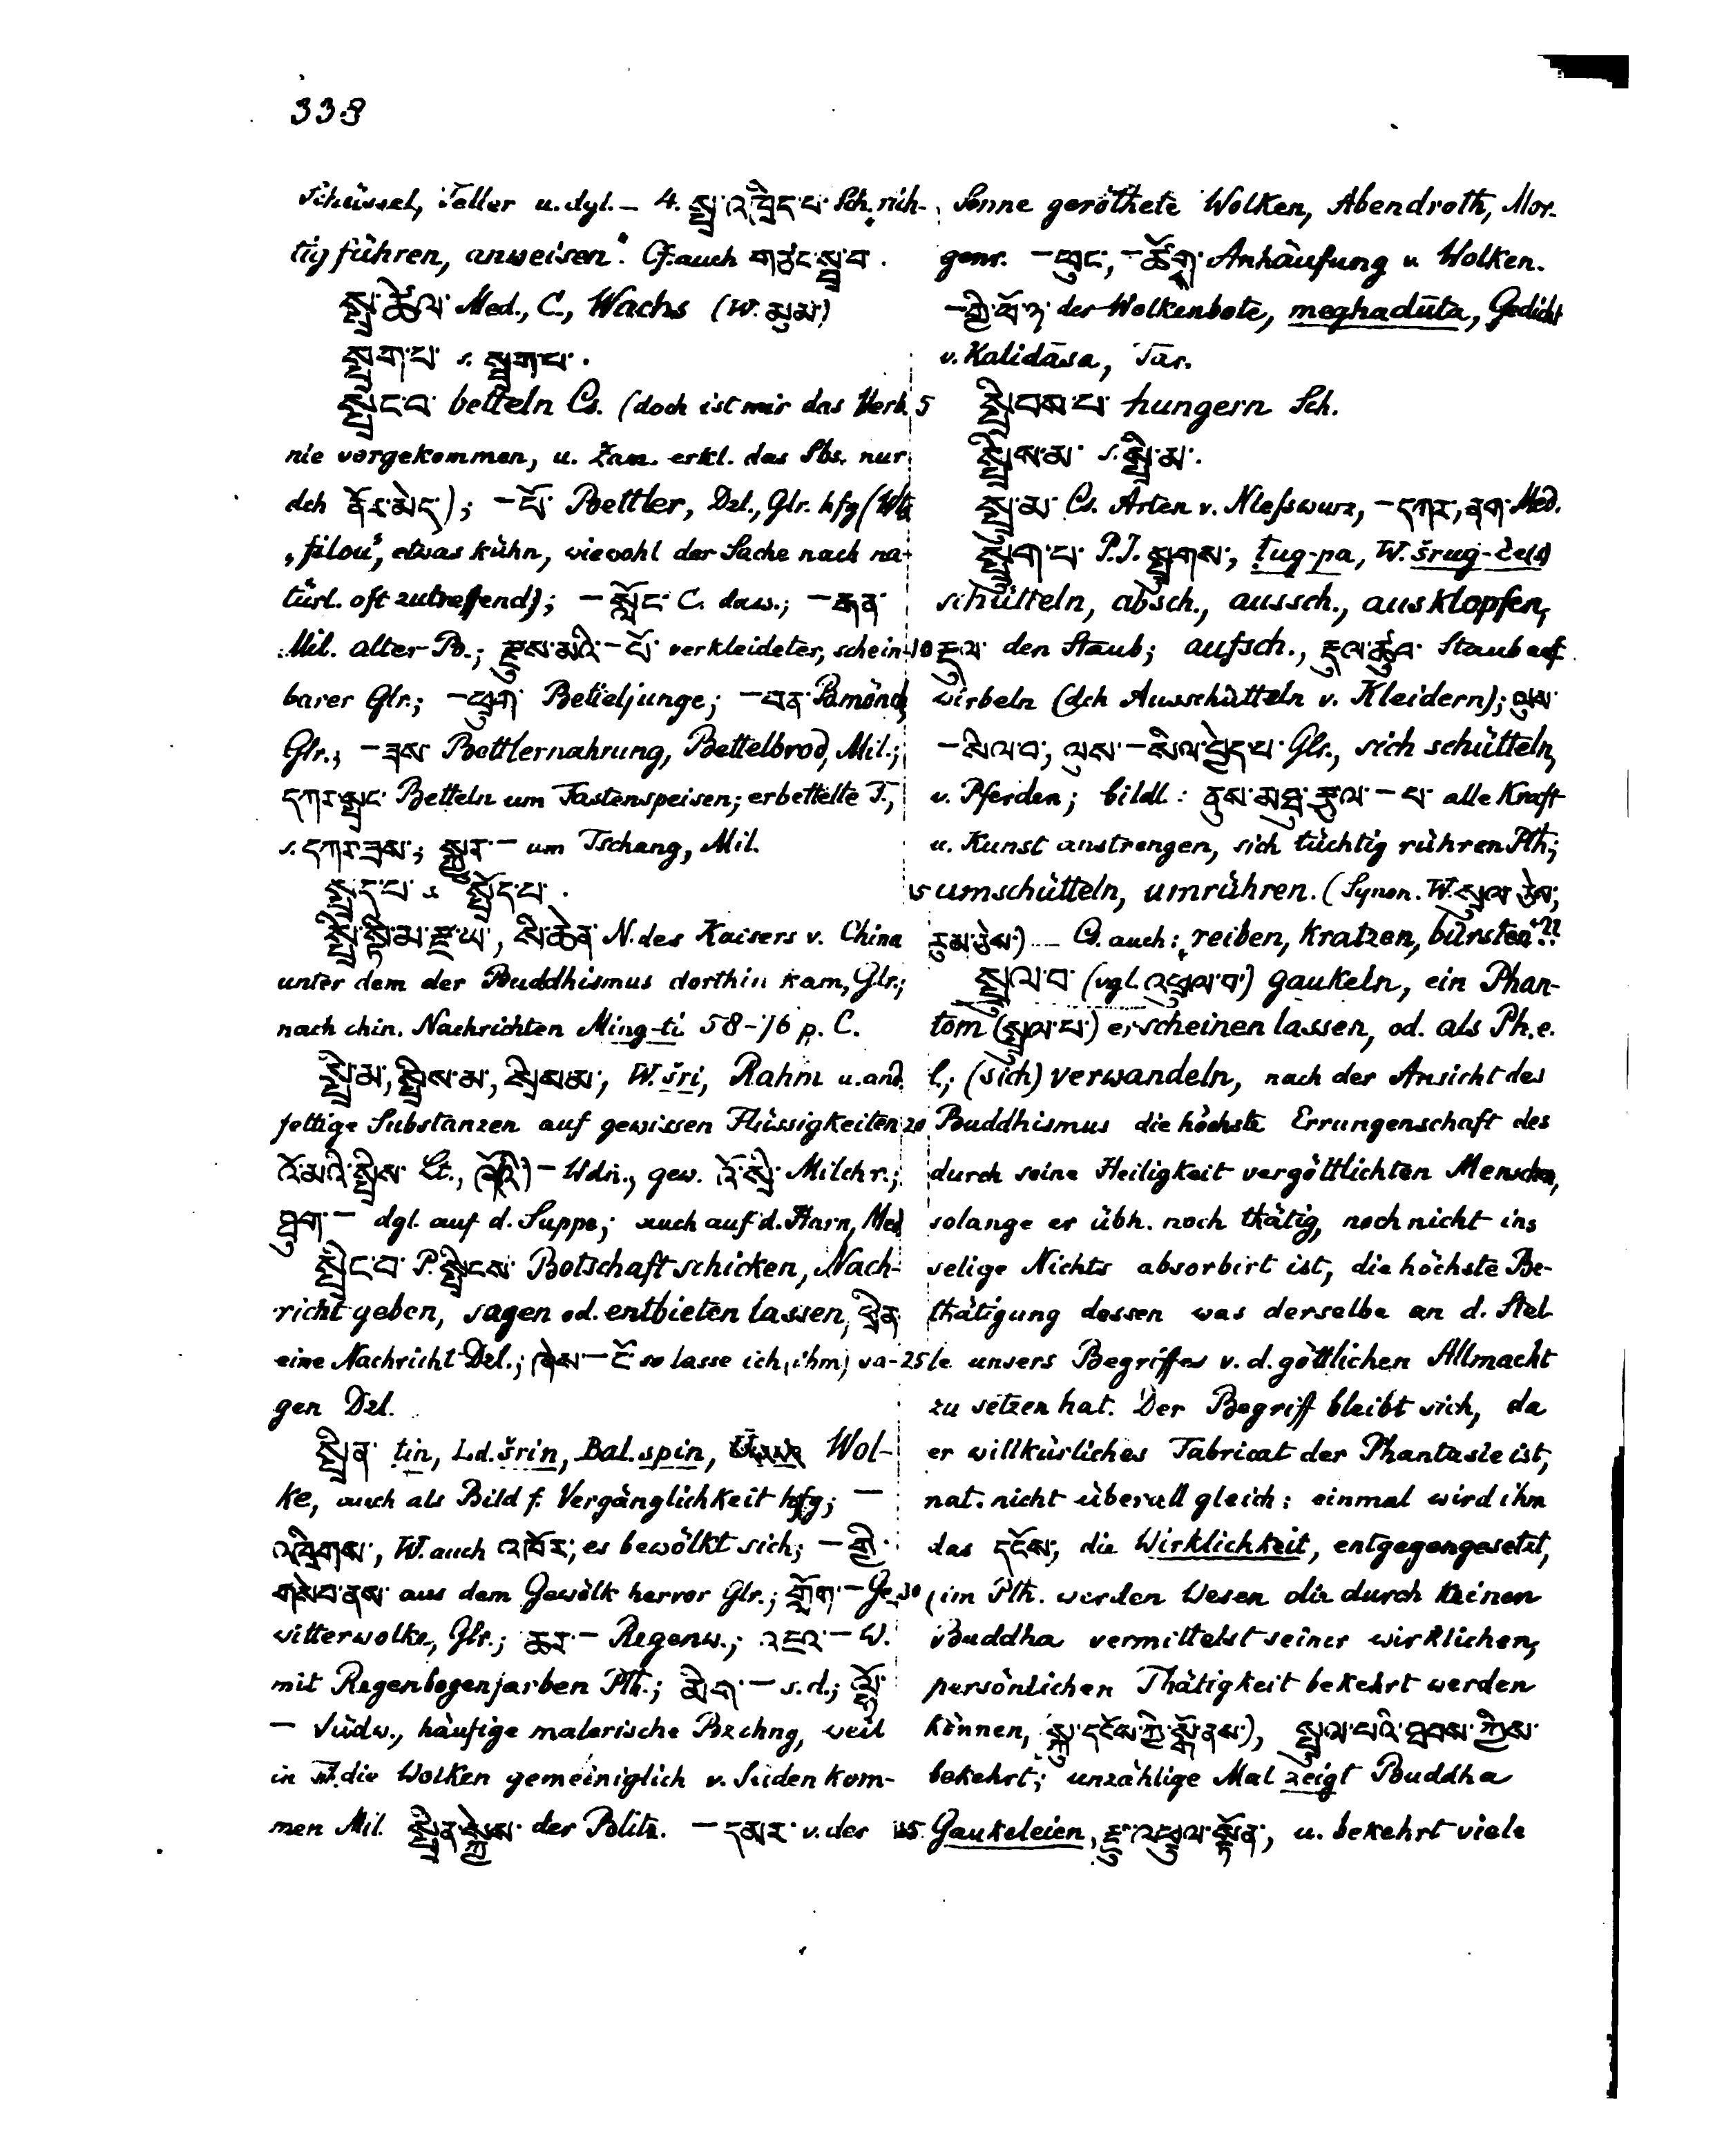 338
Schüssel, Teller u. dgl. – 4. སྤྲ་འཁྲིད་པ་ Sch. rich-
tig führen, anweisen. Cf. auch
སྤྲ་ཚིལ་ Med., C., Wachs (W. མུམ་)
སྤྲག་པ་ s. སྦྲག་པ་.
སྤྲང་བ་ betteln Cs. (doch ist mir das Verb
nie vorgekommen, u. Zam. erkl. das Sbs. nur
dch ནོར་མེད་); –པོ་ Bettler, Dzl., Glr. hfg
„filou“, etwas kühn, wiewohl der Sache nach na-
türl. oft zutreffend); –སློང་ C. dass.; –རྒན་
Mil. alter B.; རྫུས་མའི་–པོ་ verkleideter, schein-
barer Glr.; –ཕྲུག་ Betteljunge; –བན་ Bmönch
Glr.; –ཟས་ Bettlernahrung, Bettelbrod, Mil.;
དཀར་སྤྲང་ Betteln um Fastenspeisen; erbettelte F.,
s. དཀར་ཟས་; སྐྱུར་– um Tschang, Mil.
སྤྲད་པ་ s སྤྲོད་པ་.
N. des Kaisers v. China
unter dem der Buddhismus dorthin kam, Glr.;
nach chin. Nachrichten Ming-ti 58-76 p. C.
སྤྲི་མ་, སྤྲིས་མ་, W. šri, Rahm u. and.
fettige Substanzen auf gewissen Flüssigkeiten
འོ་མའི་སྤྲིས་ Lt., – Wdn., gew. འོ་སྤྲི་ Milchr.;
ཐུག་– dgl. auf d. Suppe; auch auf d. Harn, Med
སྤྲིང་བ་ P. སྤྲིངས་ Botschaft schicken, Nach-
richt geben, sagen od. entbieten lassen, ཕྲིན་
eine Nachricht Dzl.; ཞེས་–ངོ་ so lasse ich (ihm) sa-
gen Dzl.
སྤྲིན་ tin, Ld. šrin, Bal. spin, Wol-
ke, auch als Bild f. Vergänglichkeit hfg; –
འཁྲིགས་, W. auch འཁོར་; es bewölkt sich; –གྱི་
གསེབ་ནས་ aus dem Gewölk hervor Glr.; གློག་– Ge-
witterwolke, Glr.; ཆར་– Regenw.; འཇའ་– W.
mit Regenbogenfarben Pth.; མིག་– s. d.; ལྷོ་
– Südw., häufige malerische Bzchng, weil
in T. die Wolken gemeiniglich v. Süden kom-
men Mil. སྤྲིན་སྐྱེས་ der Blitz. –དམར་ v. der
Sonne geröthete Wolken, Abendroth, Mor-
genr. –ཕུང་, –ཚོགས་ Anhäufung v. Wolken.
–གྱི་ཕོ་ཉ་ der Wolkenbote, meghadūta, Gedicht
v. Kalidāsa, Tār.
5 སྤྲིབས་པ་ hungern Sch.
སྤྲིས་མ་ s. སྤྲི་མ་.
སྤྲུ་མ་ Cs. Arten v. Nießwurz, –དཀར་, ནག་ Med.
སྤྲུག་པ་ P. J. སྤྲུགས་, ṭug-pa, W. šrug-čes
schütteln, absch., aussch., ausklopfen,
10 རྡུལ་ den Staub; aufsch., རྡུལ་ཚུབ་ Staub auf
wirbeln (dch Ausschütteln v. Kleidern); ལུས་
–སིལ་བ་, ལུས་–སིལ་བྱེད་པ་ Glr., sich schütteln,
v. Pferden; bildl.: ནུས་མཐུ་རྩལ་–པ་ alle Kraft
u. Kunst anstrengen, sich tüchtig rühren Pth.;
15 umschütteln, umrühren. (Synon. W.
Cs. auch: reiben, kratzen, bürsten??
སྤྲུལ་བ་ (vgl. འཕྲུལ་བ་) gaukeln, ein Phan-
tom (སྤྲུལ་པ་) erscheinen lassen, od. als Ph. e.
l.; (sich) verwandeln, nach der Ansicht des
20 Buddhismus die höchste Errungenschaft des
durch seine Heiligkeit vergöttlichten Menschen,
solange er übh. noch thätig, noch nicht ins
selige Nichts absorbirt ist, die höchste Be-
thätigung dessen was derselbe an d. Stel
25 le unsers Begriffes v. d. göttlichen Allmacht
zu setzen hat. Der Begriff bleibt sich, da
er willkürliches Fabricat der Phantasie ist,
nat. nicht überall gleich: einmal wird ihm
das དངོས་, die Wirklichkeit, entgegengesetzt,
30 (im Pth. werden Wesen die durch keinen
Buddha vermittelst seiner wirklichen,
persönlichen Thätigkeit bekehrt werden
können, སྐུ་དངོས་ཀྱི་སྒོ་ནས་), སྤྲུལ་པའི་ཐབས་ཀྱིས་
bekehrt; unzählige Mal zeigt Buddha
35 Gaukeleien, རྫུ་འཕྲུལ་སྟོན་, u. bekehrt viele